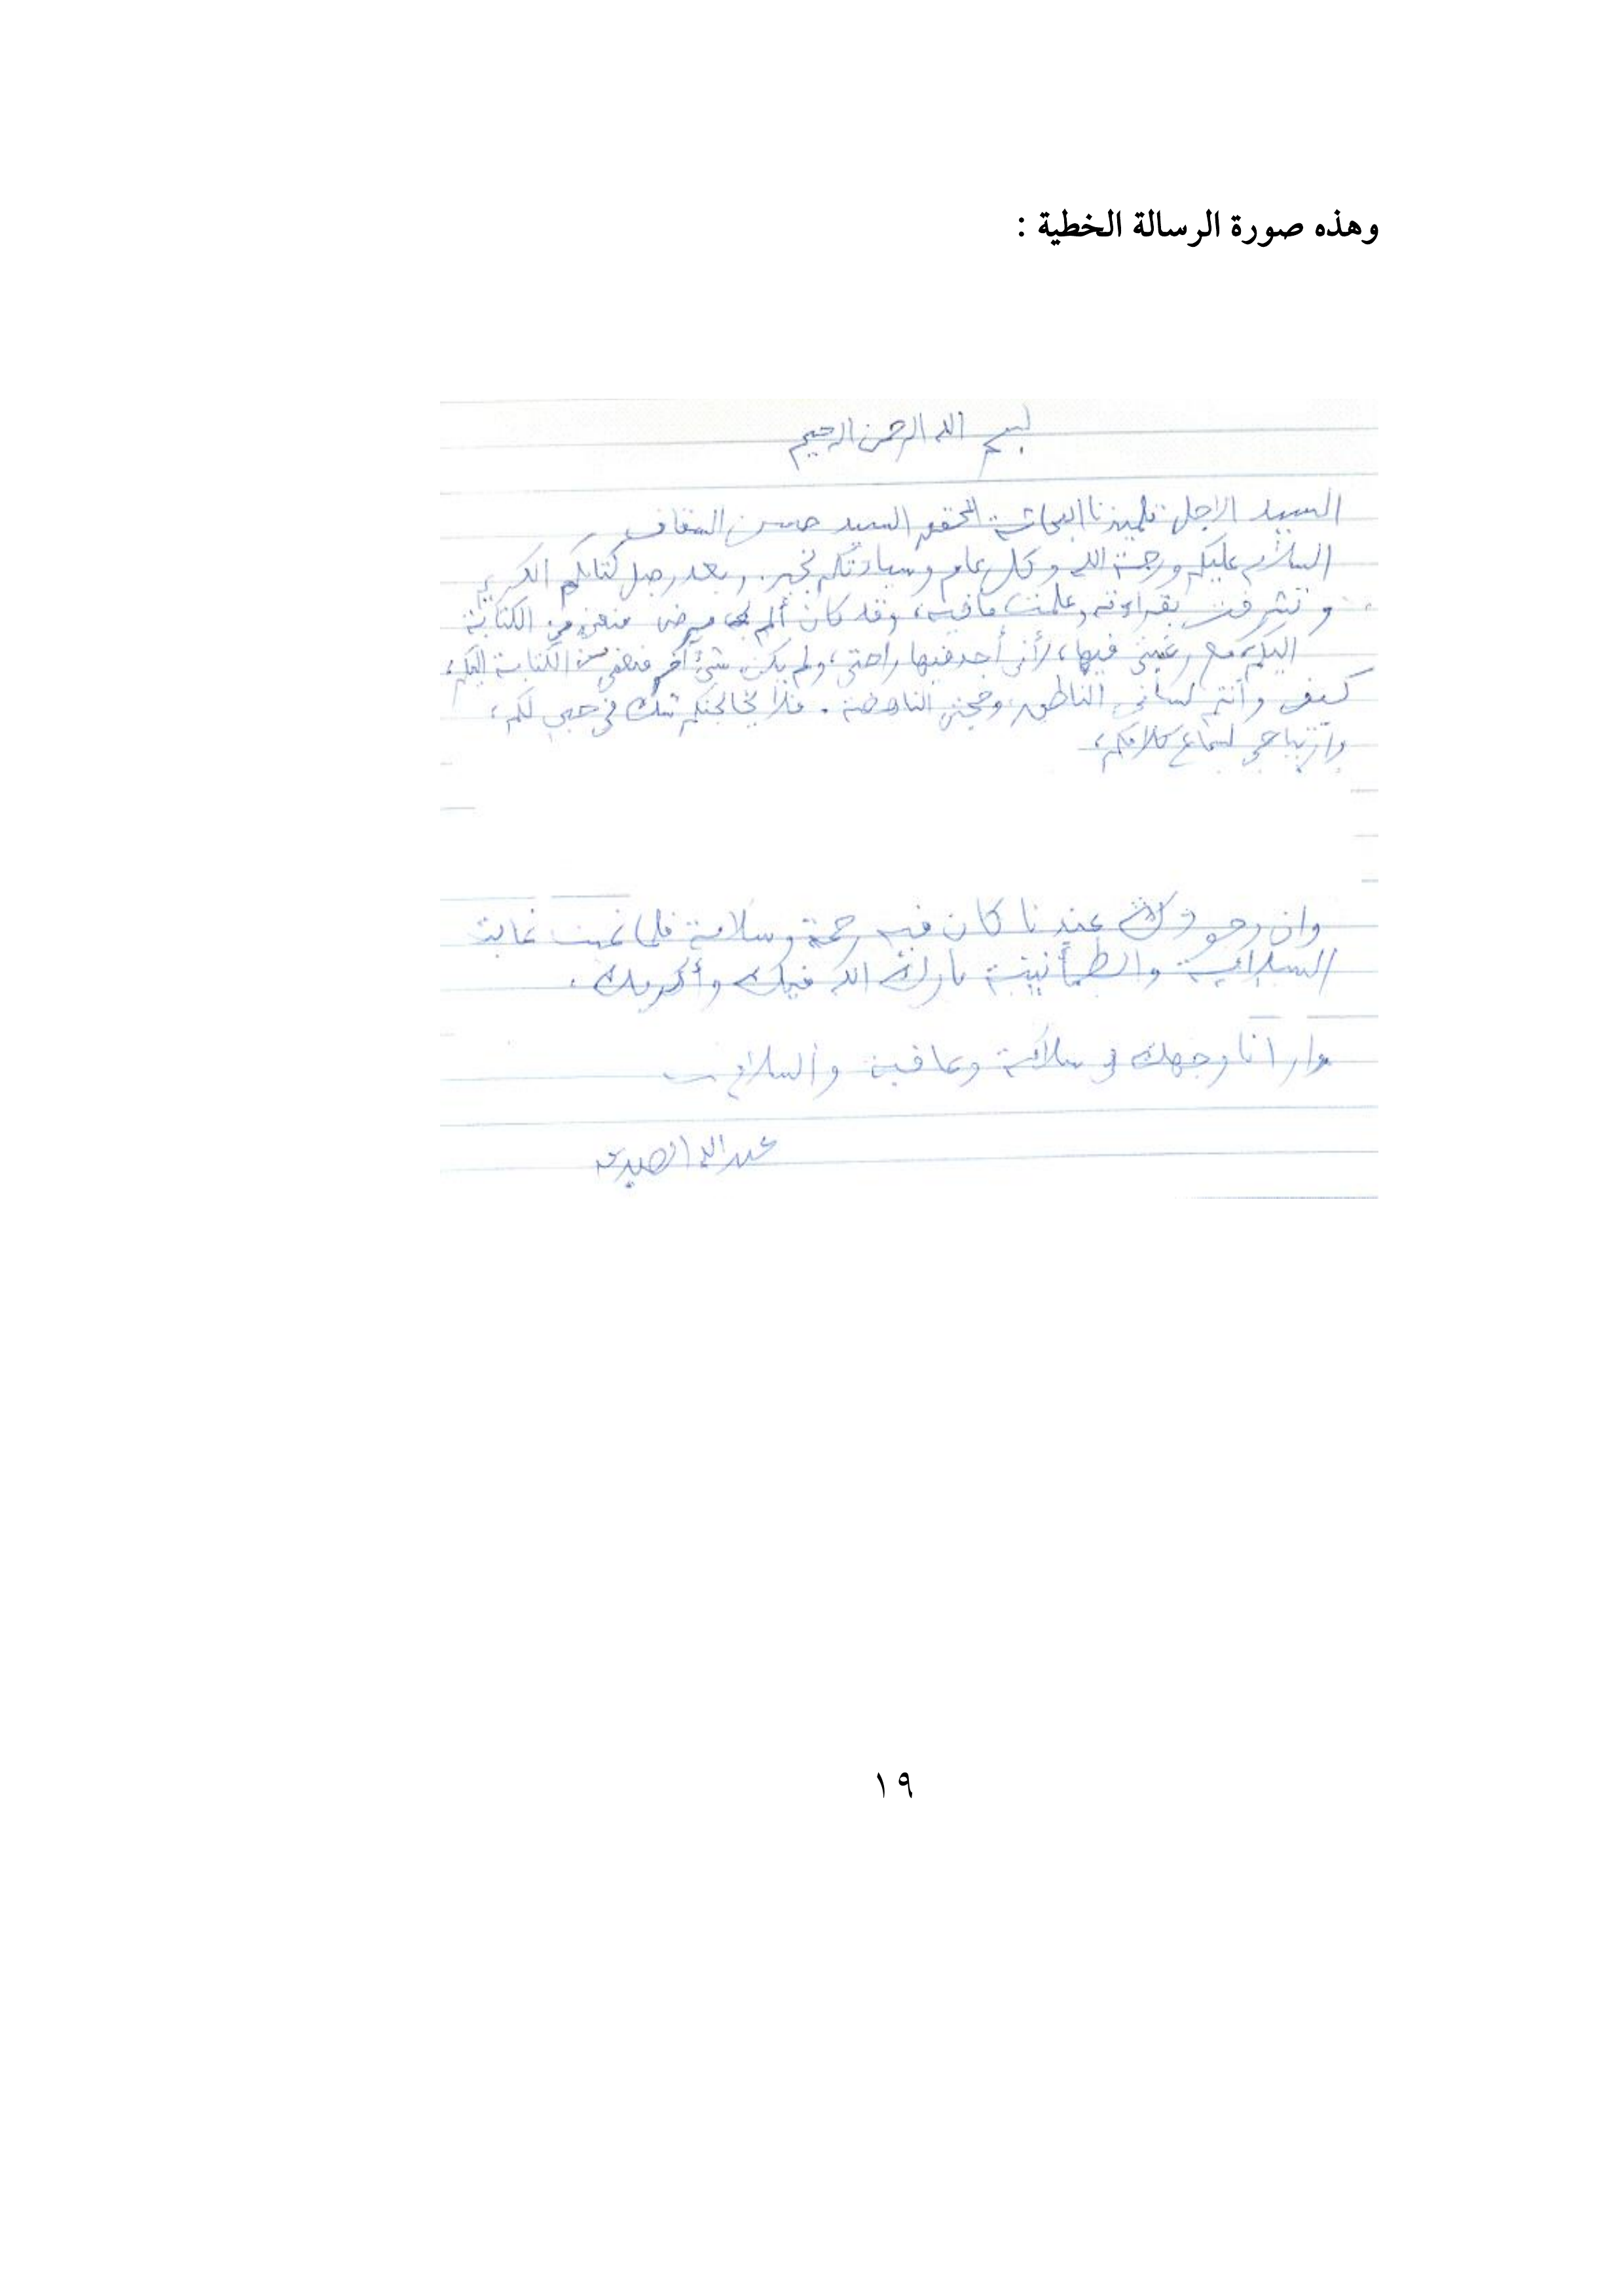 وهذه صورة الرسالة الخطية :
بسم الله الرحمن الرحيم
السيد الاجل تلميذنا البحاثة المحقق السيد حسن السقاف
السلام عليكم ورحمة الله وكل عام وسيادتكم بخير . وبعد وصل كتابكم الكريم
وتشرفت بقراءته وعلمت مافيه، وقد كان ألم بى مرض منعنى من الكتابة
اليكم مع رغبتى فيها، لأنى أجد فيها راحتى، ولم يكن شئ آخر منعنى من الكتابة اليكم،
كيف وأنتم لسانى الناطق، وحجتى الناهضة . فلا يخالجنكم شك في حبى لكم،
وارتياحى لسماع كلامكم،
وان وجودك عندنا كان فيه رحمة وسلامة فلما غبت غابت
السلامة والطمأنينة بارك الله فيك وأكرمك .
وارانا وجهك في سلامة وعافية والسلام
عبد الله الصديق
١٩